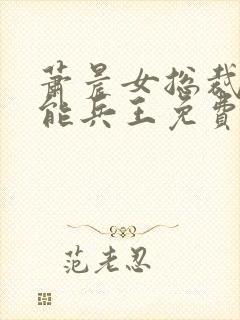 萧晨女总裁
能兵王免費
范老忍